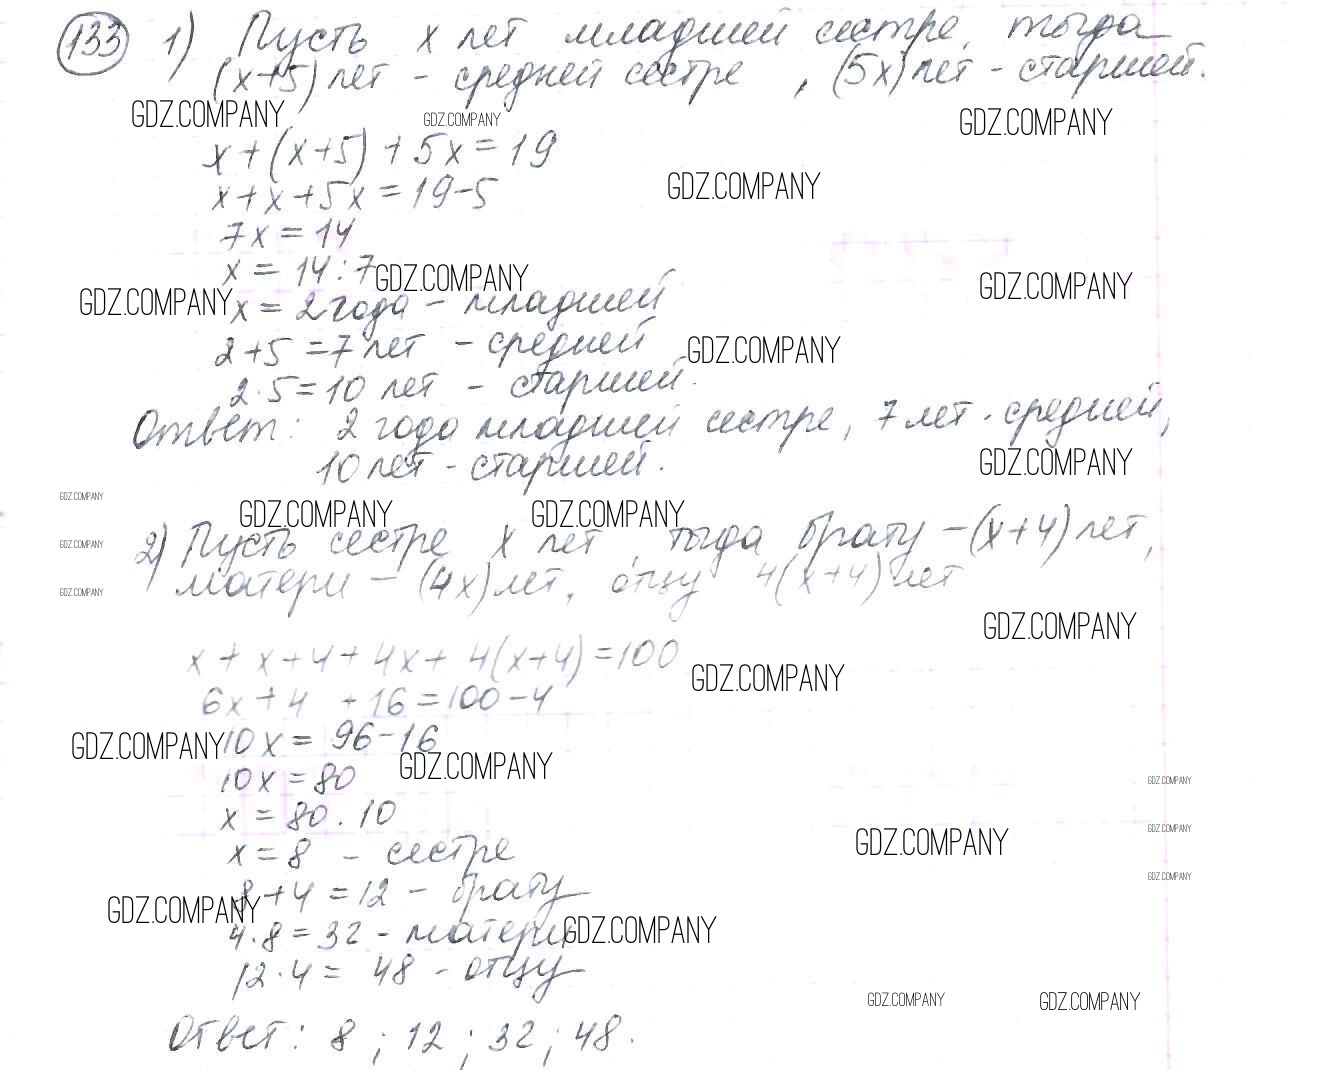 133 1) Пусть x лет младшей сестре, тогда
(x+5) лет - средней сестре, (5x) лет - старшей.
GDZ.COMPANY GDZ.COMPANY GDZ.COMPANY
x+(x+5)+5x=19
GDZ.COMPANY
x+x+5x=19-5
7x=14
x=14:7
GDZ.COMPANY GDZ.COMPANY
GDZ.COMPANY
x=2 года - младшей
2+5=7 лет - средней
GDZ.COMPANY
2·5=10 лет - старшей.
Ответ: 2 года младшей сестре, 7 лет - средней,
10 лет - старшей.
GDZ.COMPANY
GDZ.COMPANY
GDZ.COMPANY GDZ.COMPANY
2) Пусть сестре x лет, тогда брату - (x+4) лет,
GDZ.COMPANY
матери - (4x) лет, отцу 4(x+4) лет
GDZ.COMPANY
GDZ.COMPANY
x+x+4+4x+4(x+4)=100
GDZ.COMPANY
6x+4 +16=100-4
10x=96-16
GDZ.COMPANY
GDZ.COMPANY
10x=80
GDZ.COMPANY
x=80.10
GDZ.COMPANY
GDZ.COMPANY
x=8 - сестре
GDZ.COMPANY
8+4=12 - брату
GDZ.COMPANY
4·8=32 - матери
GDZ.COMPANY
12·4=48 - отцу
GDZ.COMPANY GDZ.COMPANY
Ответ: 8; 12; 32; 48.